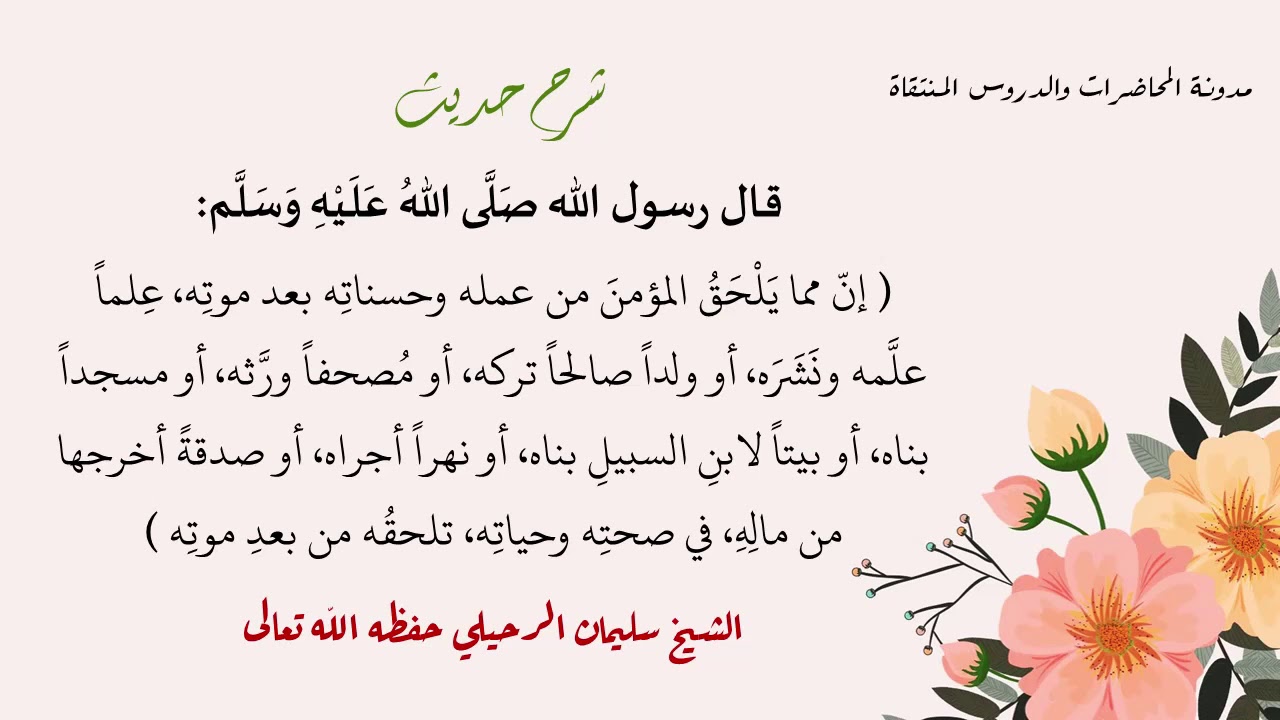 مدونة المحاضرات والدروس المنتقاة
شرح حديث
قال رسول الله صَلَّى اللهُ عَلَيْهِ وَسَلَّم:
( إنّ مما يَلْحَقُ المؤمنَ من عمله وحسناتِه بعد موتِه، عِلماً
علَّمه ونَشَرَه، أو ولداً صالحاً تركه، أو مُصحفاً ورَّثه، أو مسجداً
بناه، أو بيتاً لابنِ السبيلِ بناه، أو نهراً أجراه، أو صدقةً أخرجها
من مالِهِ، في صحتِه وحياتِه، تلحقُه من بعدِ موتِه )
الشيخ سليمان الرحيلي حفظه الله تعالى